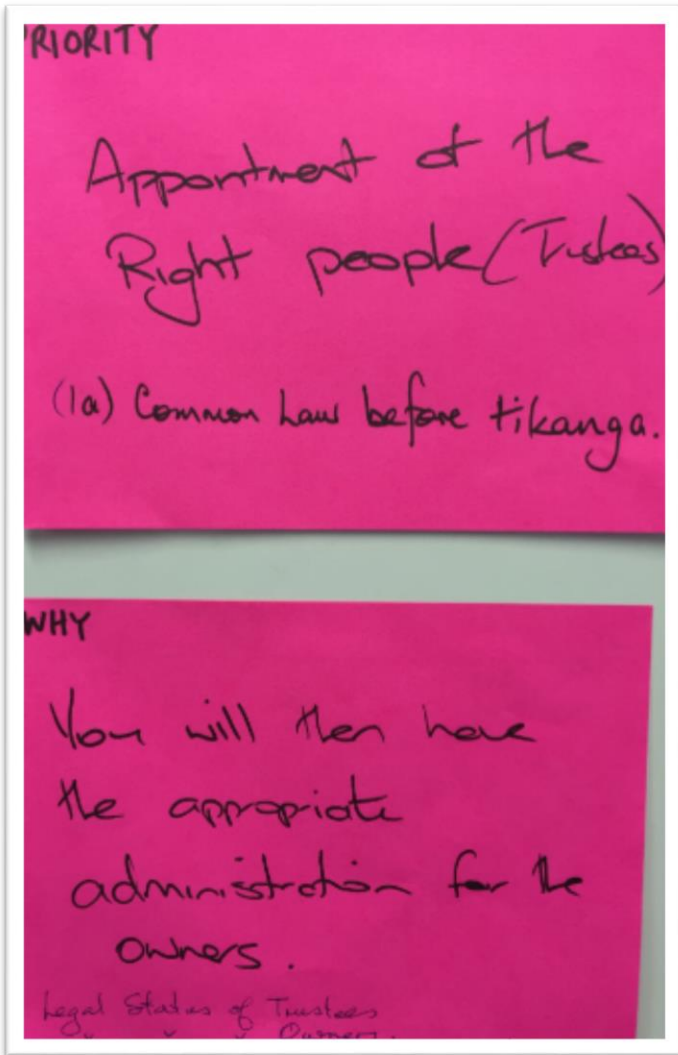 PRIORITY
Appointment of the
Right people (Trustees)
(1a) Common Law before tikanga.
WHY
You will then have
the appropriate
administration for the
owners.
Legal Status of Trustees
" " " Owners.